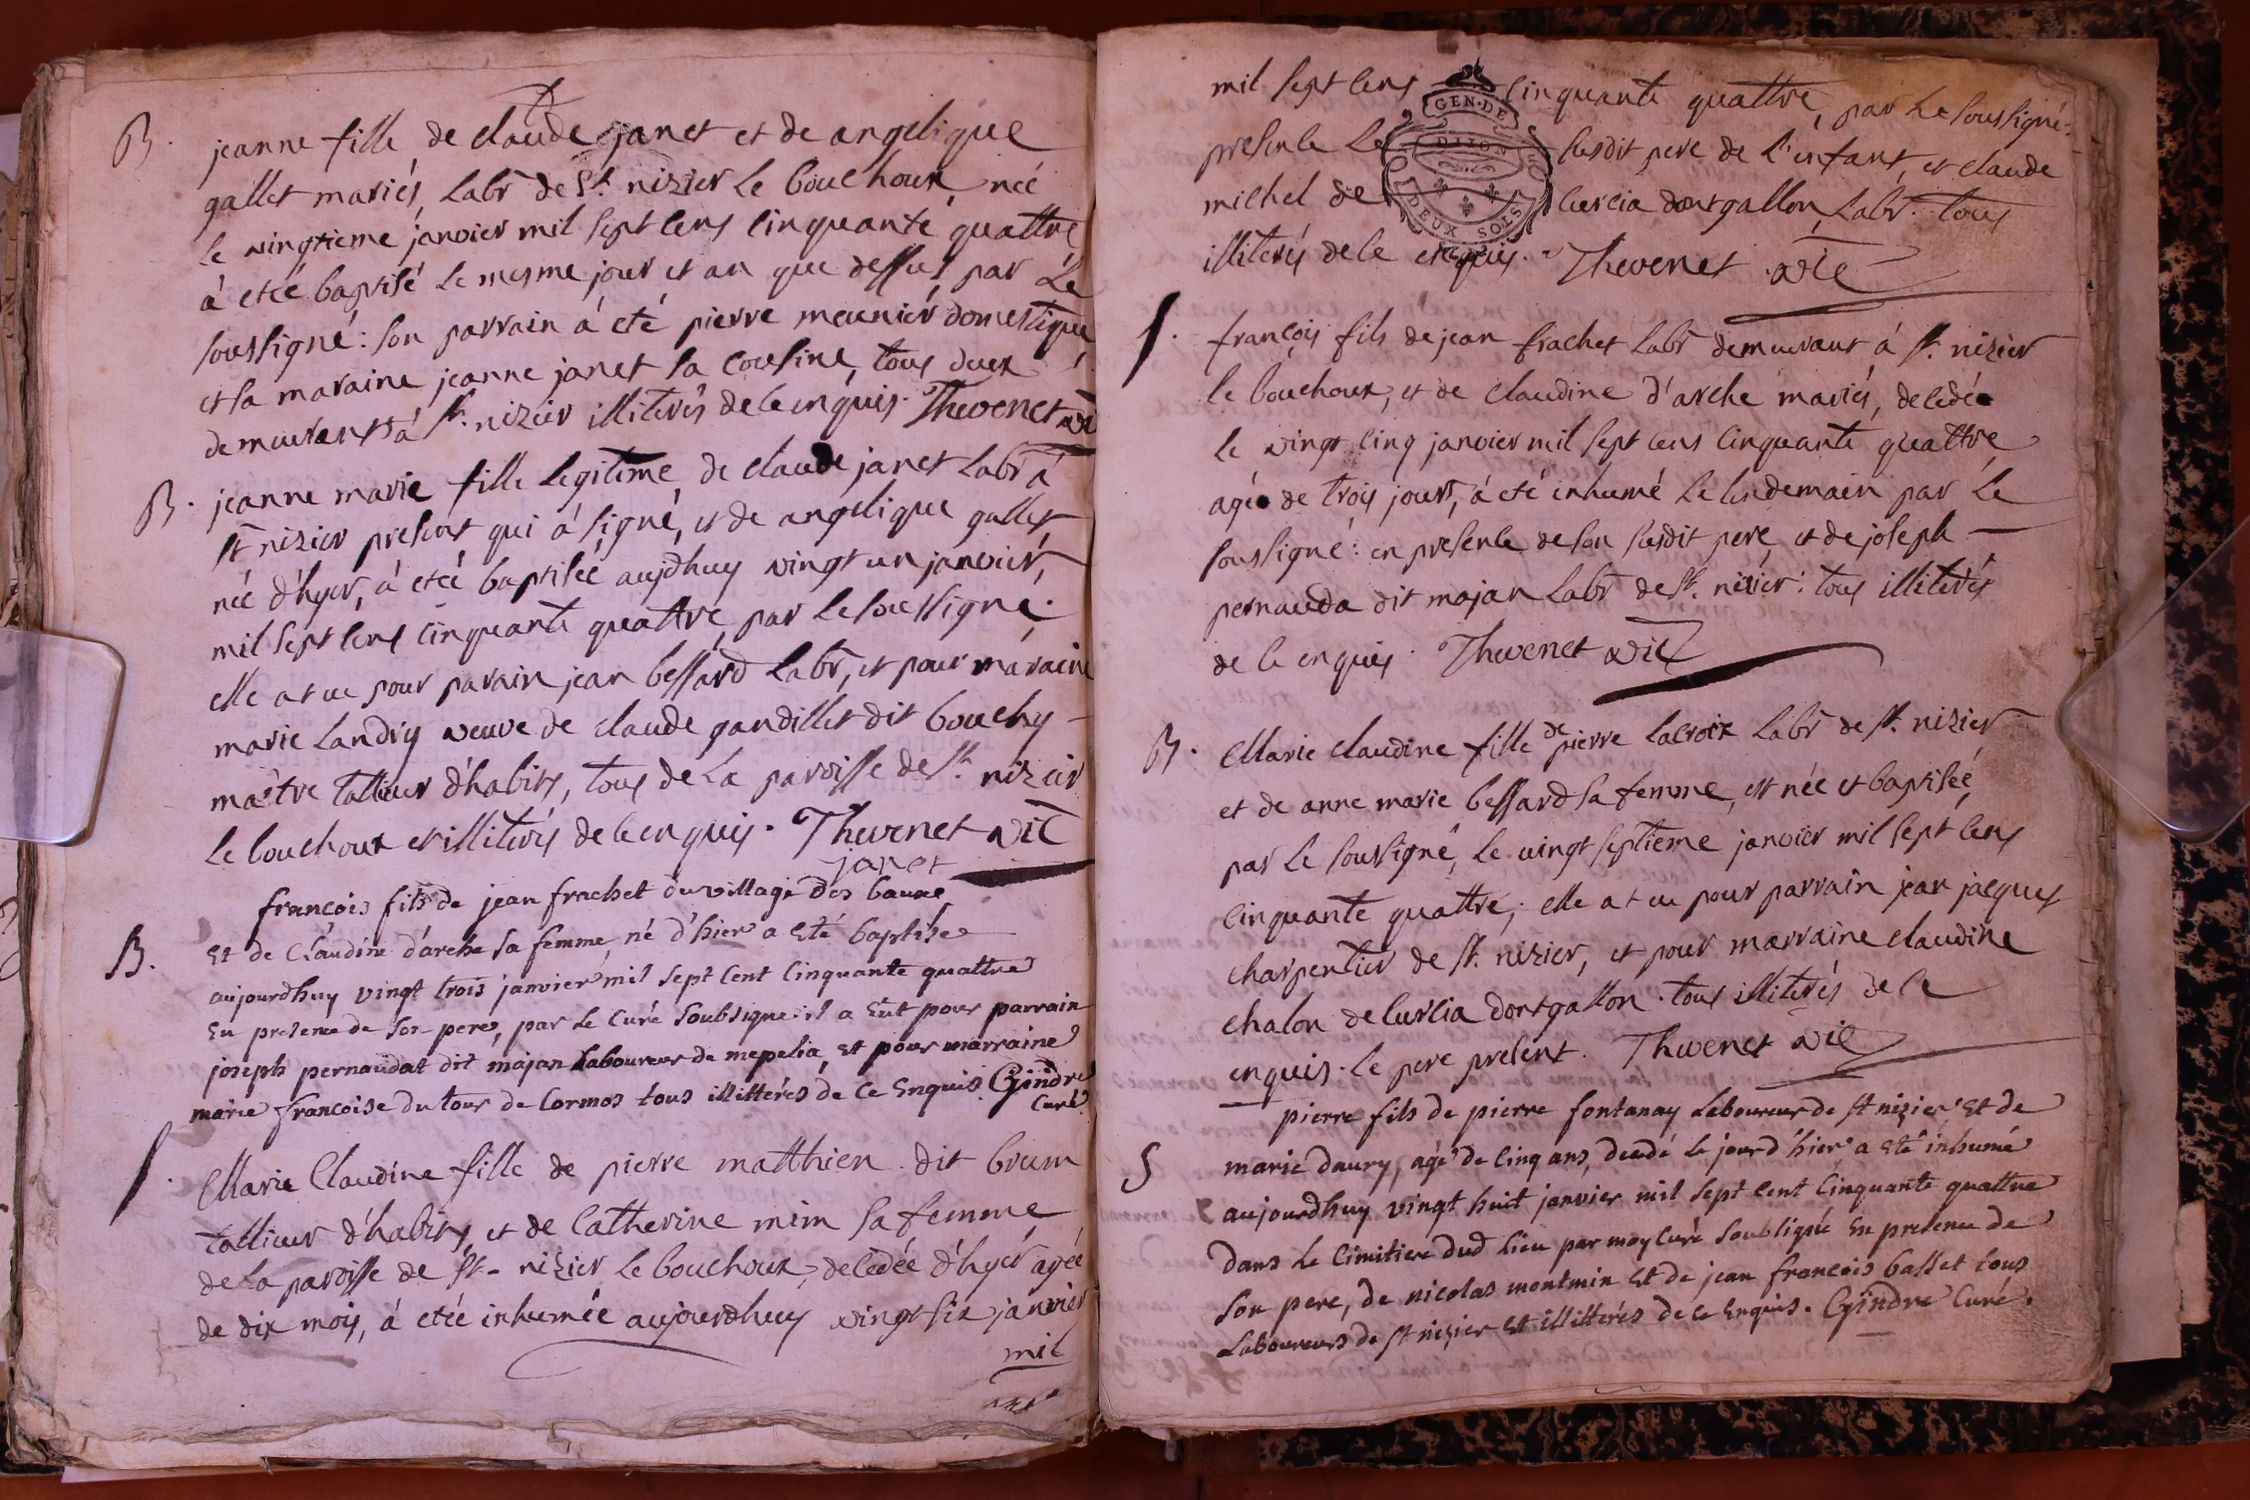 B. jeanne fille de claude janet et de angelique
gallet mariés, labr de St. nizier le bouchoux, née
le vingtieme janvier mil sept cens cinquante quattre
à etéé baptisé le mesme jour et an que dessus par le
soussigné: son parrain à eté pierre meunier domestique,
et sa maraine jeanne janet sa cousine, tous duex
demeurants à St. nizier illiterés de ce enquis. Thevenet vic
B. jeanne marie fille legitime de claude janet labr à
St nizier present qui à signé, et de angelique gallet
née d'hyer, à etéé baptiséé aujdhuy vingt un janvier,
mil sept cens cinquante quattre par le soussigné.
elle at eu pour parain jean bessard labr, et pour maraine
marie landry veuve de claude gandillet dit bouchy
maître tallieur d'habits, tous de la paroisse de St. nizier
le bouchoux et illiterés de ce enquis. Thevenet vic
janet
francois fils de jean frachet du village des baune
B. et de Claudine d'arche sa femme, né d'hier a eté baptise
aujourdhuy vingt trois janvier mil sept cent cinquante quattre
en presence de son pere, par le curé soubsigne: il a eut pour parrain
joseph pernaudat dit majan laboureur de mepelia, et pour marraine
marie francoise du tour de cormos tous illitterés de ce enquis. Gindre
Curé.
S. Marie Claudine fille de pierre matthieu dit brum
tallieur d'habits, et de Catherine mim sa femme
de la paroisse de St. nizier le bouchoux, decedée d'hyer agéé
de dix mois, à etéé inhumée aujourdhuy vingt six janvier
mil
mil sept cens cinquante quattre, par le soussigné:
GEN. DE
DIJON
DEUX SOLS
presence le susdit pere de l'enfant, et claude
michel de curcia dontgallon, labr. tous
illiterés de ce enquis. Thevenet vic
S. françois fils de jean frachet labr demeurant à St. nizier
le bouchoux, et de claudine d'arche mariés, decedé
le vingt cinq janvier mil sept cens cinquante quattre
agé de trois jours, à eté inhumé le lendemain par le
soussigné: en presence de son susdit pere et de joseph
pernauda dit majan labr de St. nizier: tous illiterés
de ce enquis. Thevenet vic
B. Marie claudine fille de pierre lacroix labr de St. nizier
et de anne marie bessard sa femme, est née et baptiséé,
par le soussigné, le vingt septieme janvier mil sept cens
cinquante quattre; elle at eu pour parrain jean jacques
charpentier de St. nizier, et pour marraine claudine
chalon de curcia dontgallon. tous illiterés de ce
enquis. le pere present. Thevenet vic
pierre fils de pierre fontanay laboureur de st nizier et de
S marie daury, agé de cinq ans, decedé le jour d'hier a eté inhumé
aujourdhuy vingt huit janvier mil sept cent cinquante quattre
dans le cimitiere dud lieu par moy curé soubsigné en presence de
son pere, de nicolas montmin et de jean francois basset tous
laboureurs de st nizier et illitterés de ce enquis. Gindre Curé.